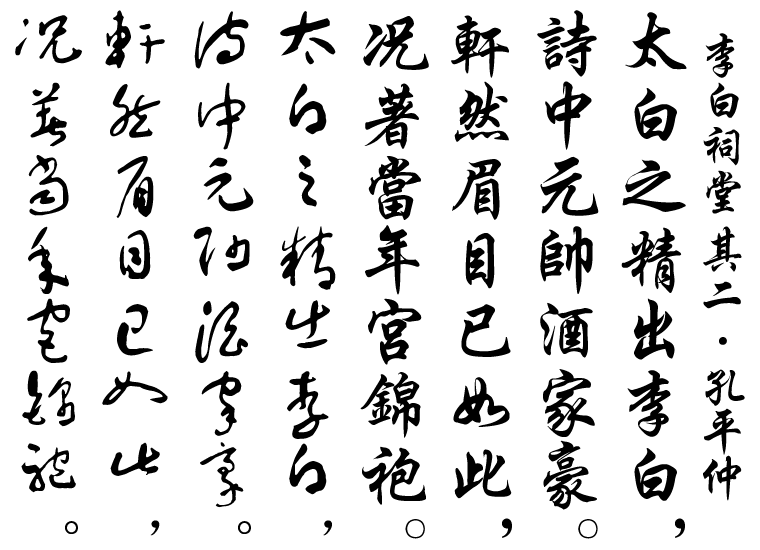 李白祠堂其二·孔平仲
太白之精出李白，
詩中元帥酒家豪。
軒然眉目已如此，
況著當年宮錦袍。
太白之精出李白，
詩中元帥酒家豪。
軒然眉目已如此，
況著當年宮錦袍。